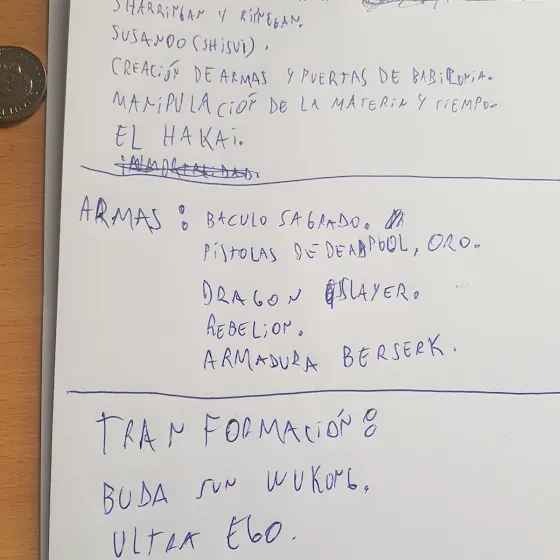 SHARRINGAN Y RINNEGAN.
SUSANOO (SHISUI).
CREACIÓN DE ARMAS Y PUERTAS DE BABILONIA.
MANIPULACIÓN DE LA MATERIA Y TIEMPO.
EL HAKAI.
INMORTALIDAD.
ARMAS: BACULO SAGRADO.
PISTOLAS DE DEADPOOL, ORO.
DRAGON SLAYER.
REBELION.
ARMADURA BERSERK.
TRANFORMACIÓN:
BUDA SUN WUKONG.
ULTRA EGO.